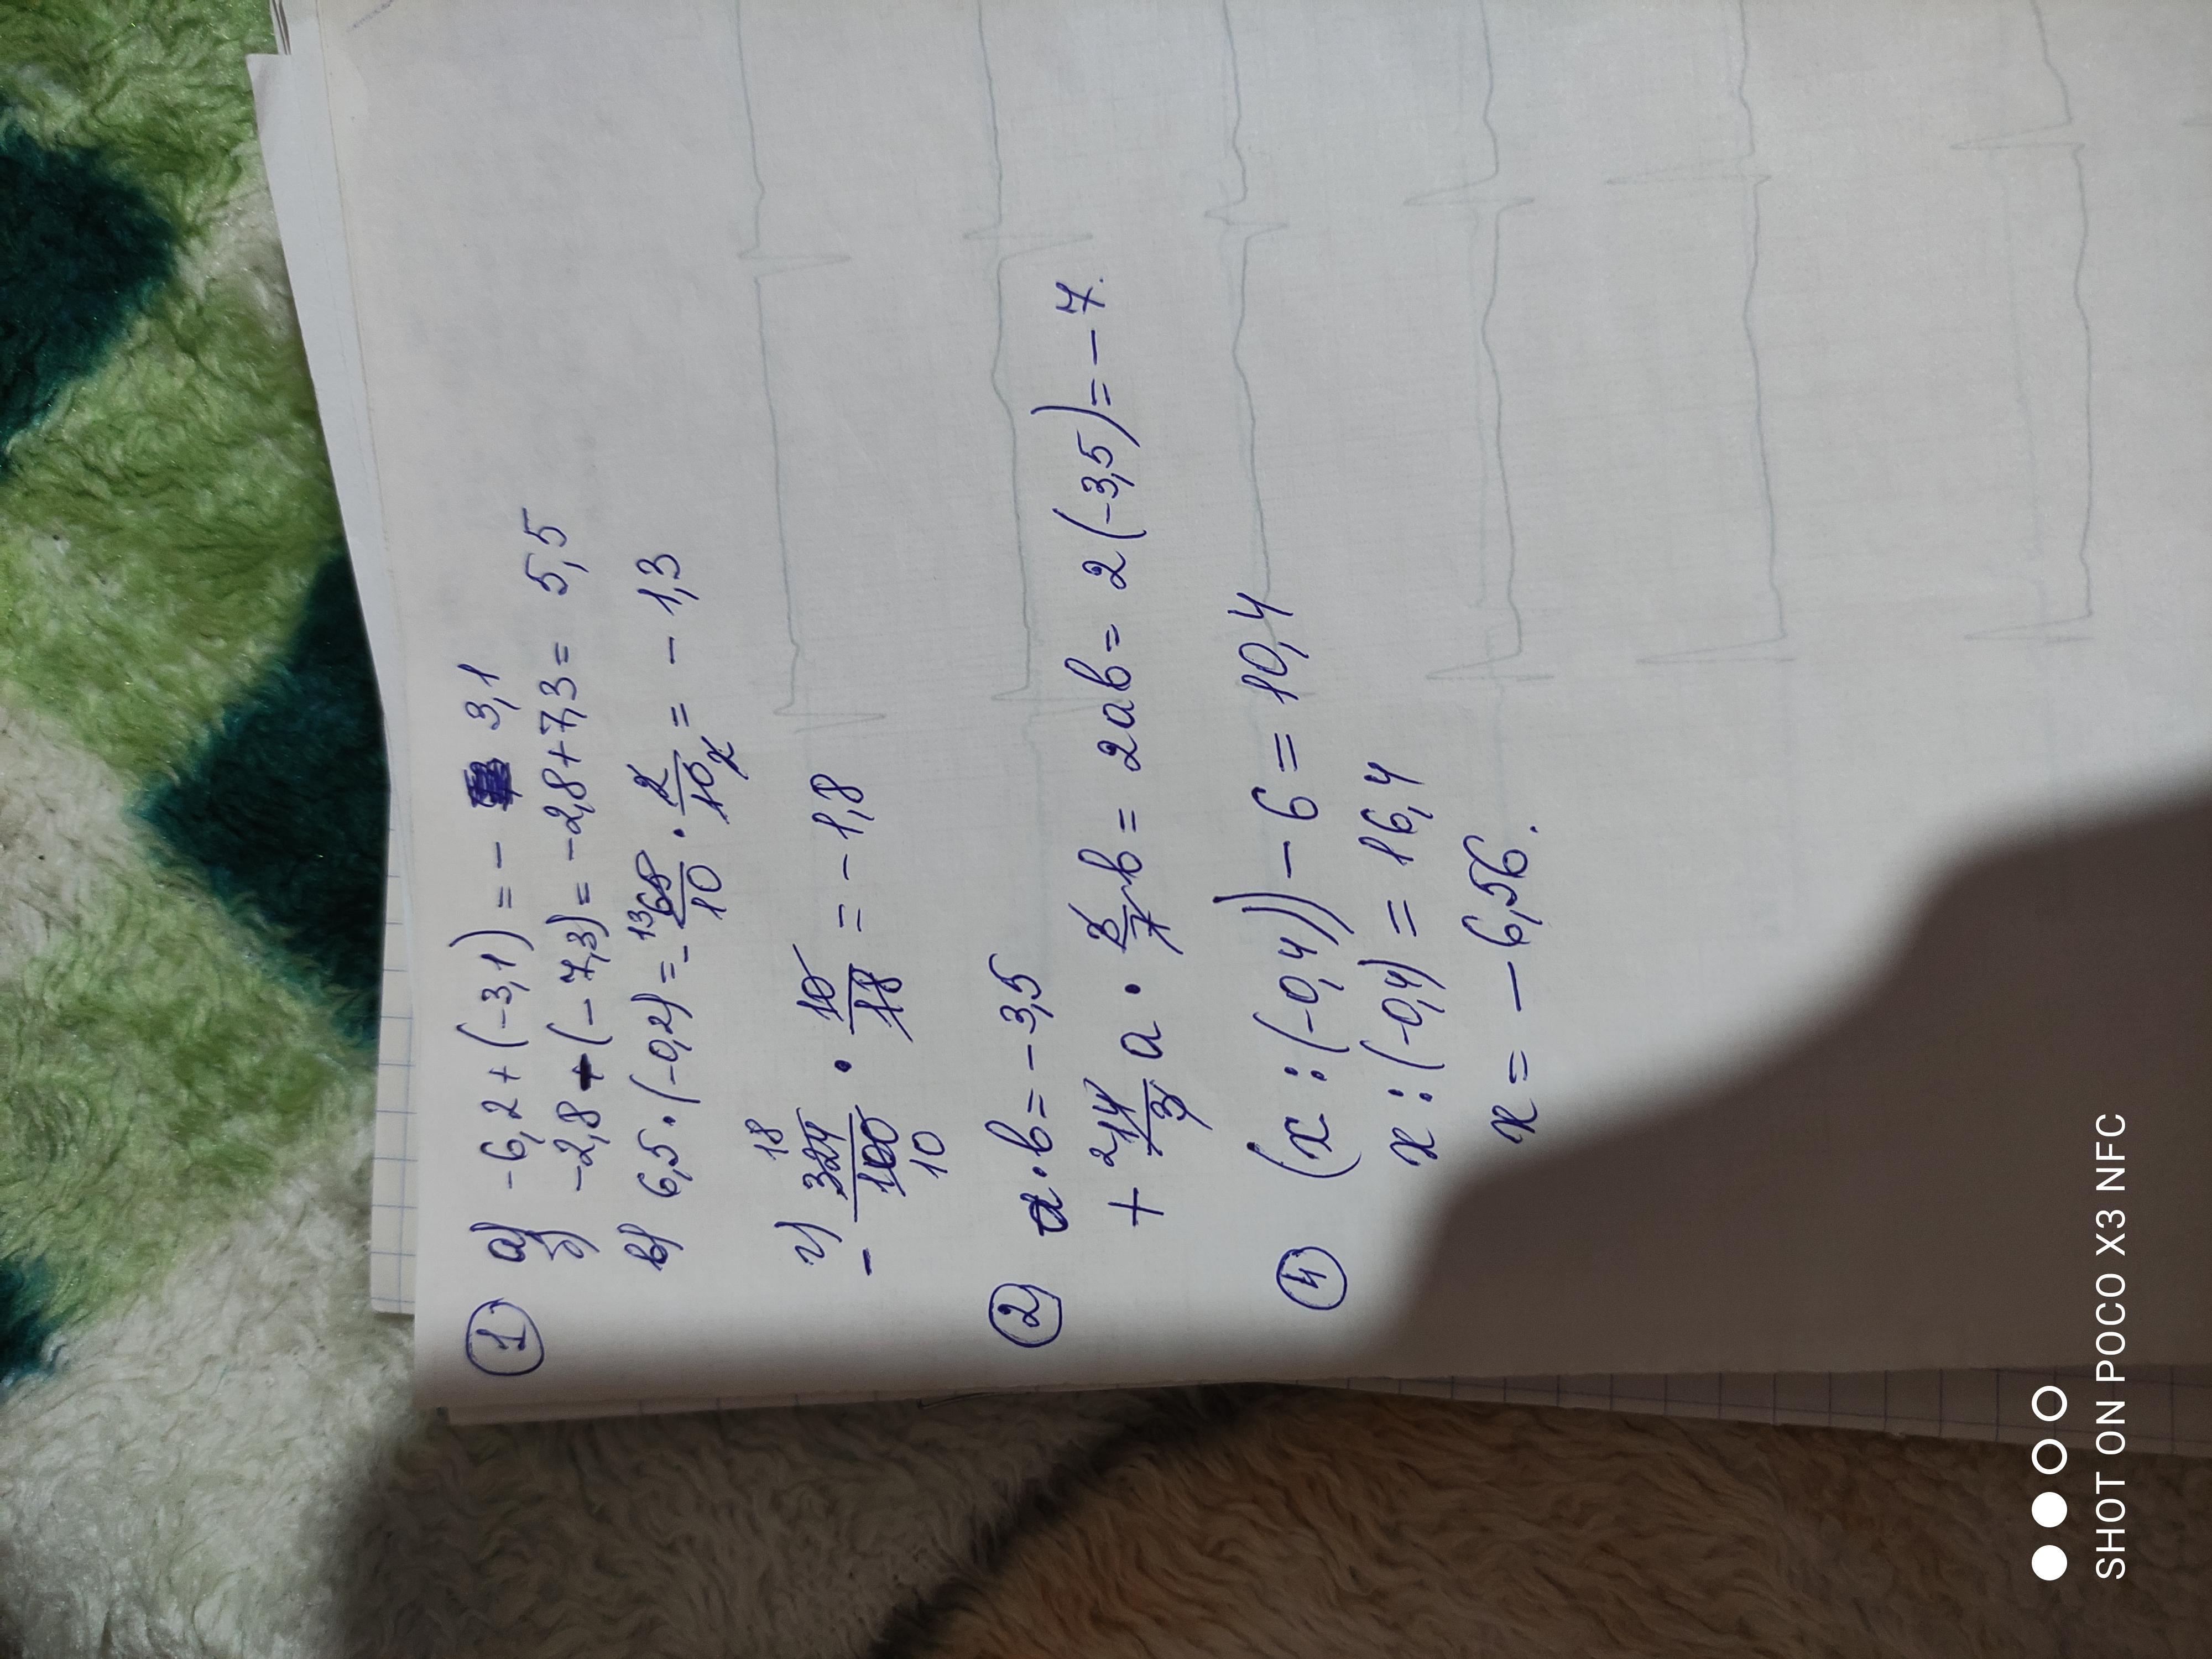 1 а) -6,2+(-3,1)=- 3,1
б) -2,8+(-7,3)=-2,8+7,3= 5,5
в) 6,5·(-0,2)=-13 65/10 · 2/10 2 = -1,3
г) - 324 18/100 10 · 10/18 = -1,8
2 a·b=-3,5
+ 2 14/3 a · 3/7 b= 2ab= 2(-3,5)=-7.
4 (x:(-0,4))-6=10,4
x:(-0,4)=16,4
x=-6,56.
SHOT ON POCO X3 NFC